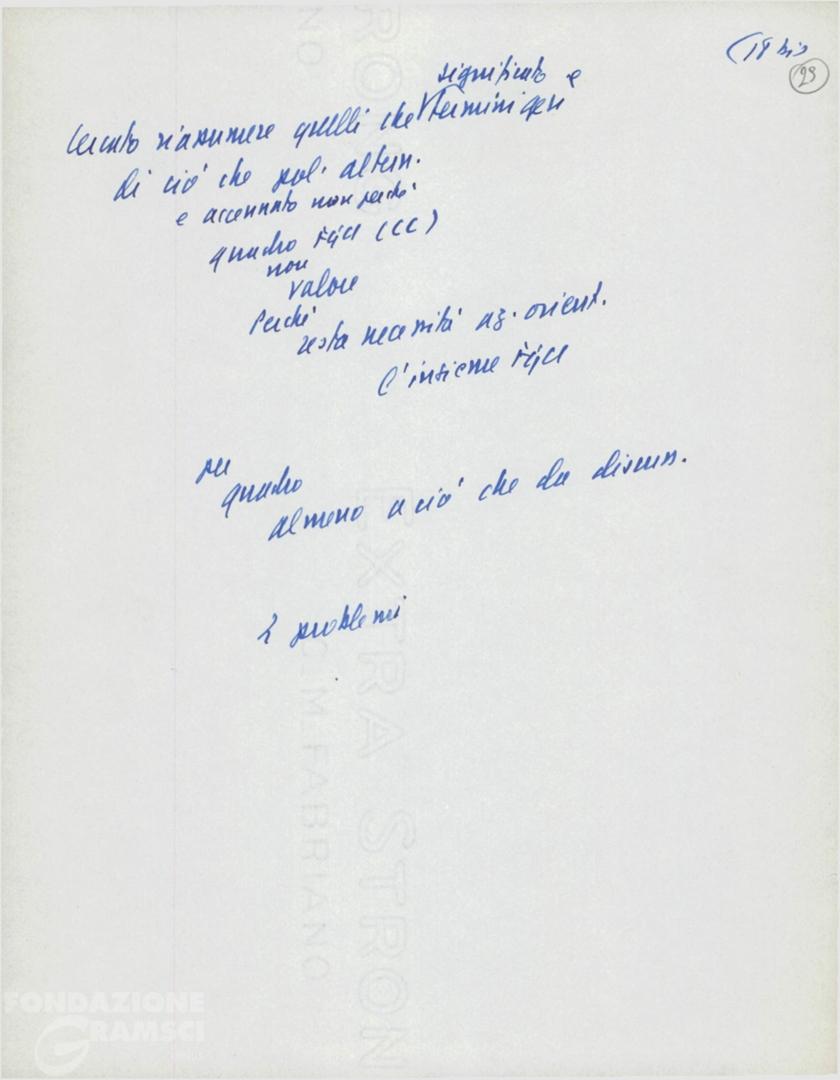 (18 bis
29
significato e
Cercato riassumere quelli che termini geri
di ciò che pol. altern.
e accennato non perché
quadro FGCI (CC)
non
valore
Perché
resta necessità az. orient.
l'insieme FGCI
per
quadro
almeno a ciò che da discuss.
2 problemi
EXTRA STRONG
C.M. FABRIANO
FONDAZIONE
GRAMSCI